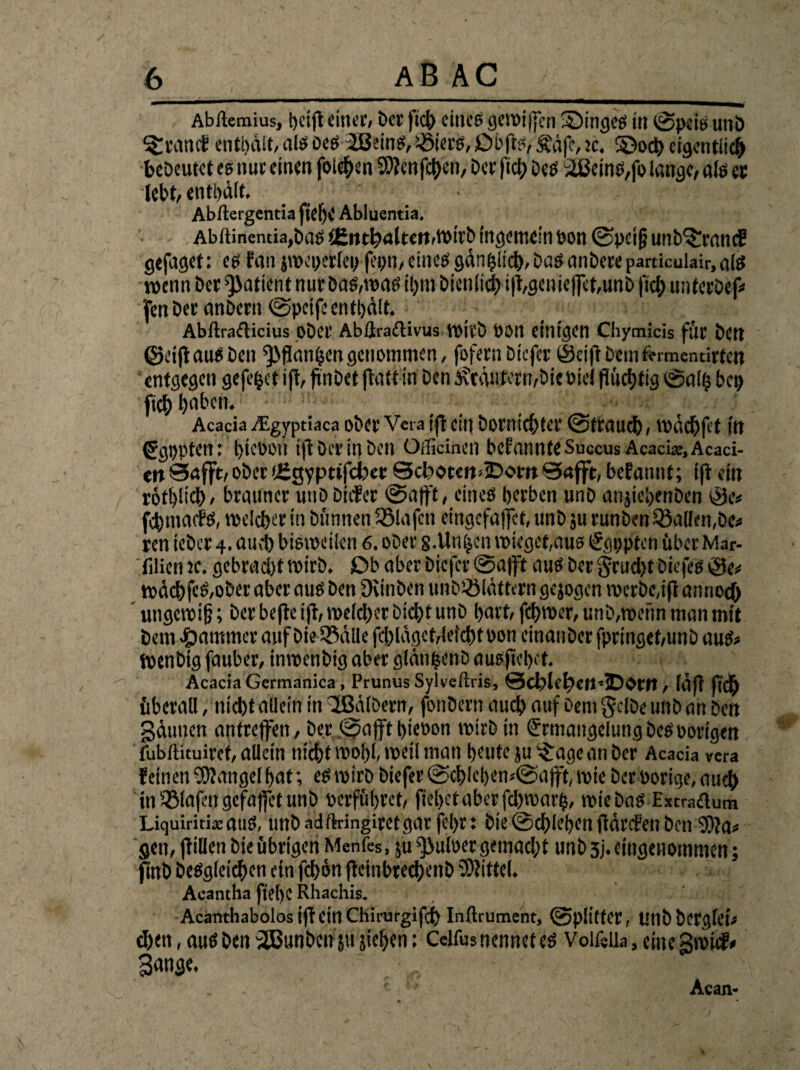 6 ABAC
Abstemius, heist einer, der sich eines gewissen Dinges in Speis und
Tranck enthält, als des Weins, Biers, Obsts, Käse, ꝛc. Doch eigentlich
bedeutet es nur einen solchen Menschen, der sich des Weins, so lange, als er
lebt, enthält.
Abstergentia siehe Abluentia.
Abstinentia, das Enthalten, wird ingemein von Speiß und Tranck
gesaget: es kan zweyerley seyn, eines gäntzlich, das andere particulair, als
wenn der Patient nur das, was ihm dienlich ist, geniesset, und sich unterdes-
sen der andern Speise enthält.
Abstracticius oder Abstractivus wird von einigen Chymicis für den
Geist aus den Pflantzen genommen, sofern dieser Geist dem fermentirten
entgegen gesetzet ist, findet statt in den Kräutern, die viel flüchtig Saltz bey
sich haben.
Acacia Ægyptiaca oder Vera ist ein dornichter Strauch, wächset in
Egypten: hievon ist der in den Officinen bekannte Succus Acaciæ, Acaci-
en Safft, oder Egyptischer Schoten-Dorn Safft, bekannt; ist ein
röthlich, brauner und dicker Safft, eines herben und anziehenden Ge-
schmacks, welcher in dünnen Blasen eingefasset, und zu runden Ballen, de-
ren ieder 4. auch bisweilen 6. oder 8. Untzen wieget, aus Egypten über Mar-
silien ꝛc. gebracht wird. Ob aber dieser Safft aus der Frucht dieses Ge-
wächses, oder aber aus den Rinden und Blättern gezogen werde, ist annoch
ungewiß; der beste ist, welcher dicht und hart, schwer, und, wenn man mit
dem Hammer auf die Bälle schläget, leicht von einander springet, und aus-
wendig sauber, inwendig aber gläntzend aussiehet.
Acacia Germanica, Prunus Sylvestris, Schlehen-Dorn, läst sich
überall, nicht allein in Wäldern, sondern auch auf dem Felde und an den
Zäunen antreffen, der Safft hievon wird in Ermangelung des vorigen
substituiret, allein nicht wohl, weil man heute zu Tage an der Acacia vera
keinen Mangel hat; es wird dieser Schlehen-Safft, wie der vorige, auch
in Blasen gefasset und verführet, siehet aber schwartz, wie das Extractum
Liquiritiæ aus, und adstringiret gar sehr: die Schlehen stärcken den Ma-
gen, stillen die übrigen Menses, zu Pulver gemacht und ʒj. eingenommen;
sind desgleichen ein schön steinbrechend Mittel.
Acantha siehe Rhachis.
Acanthabolos ist ein Chirurgisch Instrument, Splitter, und derglei-
chen, aus den Wunden zu ziehen: Celsus nennet es Volsella, eine Zwick-
Zange.
Acan-